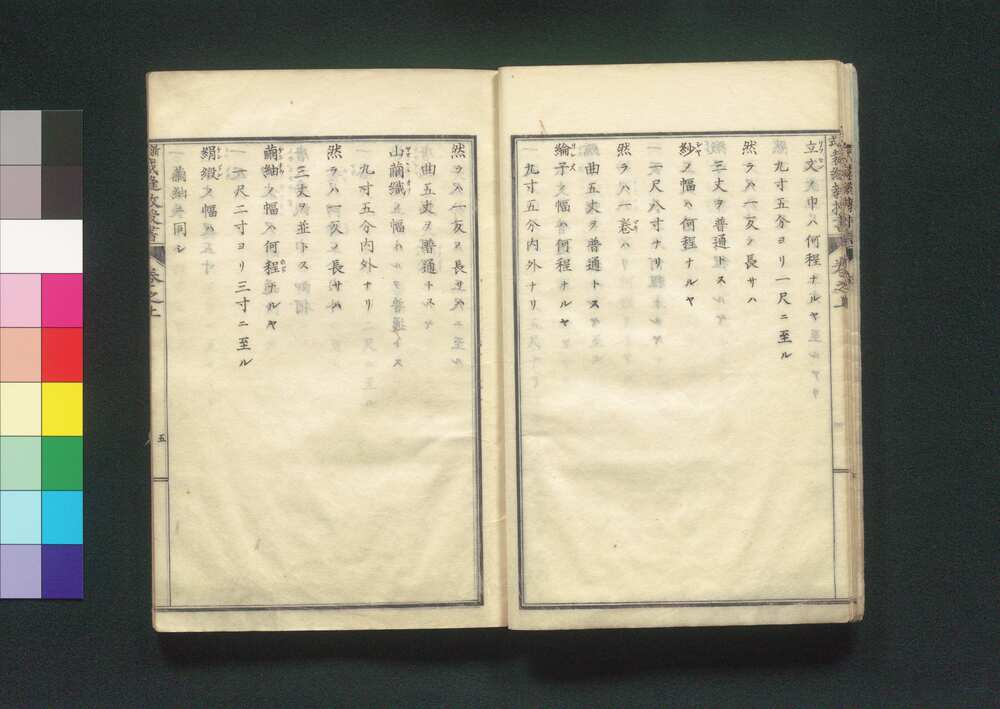 立文ノ巾ハ何程ナルヤ
一 九寸五分ヨリ一尺ニ至ル
然ラハ一反ノ長サハ
一 三丈ヲ普通トス
紗ノ幅ハ何程ナルヤ
一 一尺八寸ナリ
然ラハ一卷ハ
一 曲五丈ヲ普通トス
綸子ノ幅ハ何程ナルヤ
一 九寸五分内外ナリ
然ラハ一反ノ長サハ
一 曲五丈ヲ普通トス
山繭織ノ幅ハ
一 九寸五分内外ナリ
然ラハ一反ノ長サハ
一 三丈ヲ並トス
繭紬ノ幅ハ何程ナルヤ
一 一尺二寸ヨリ三寸ニ至ル
絹縀ノ幅ハ
一 繭紬ト同シ
卷之上
五